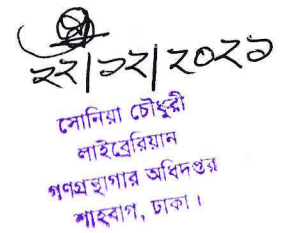 ২২/১২/২০২১
সোনিয়া চৌধুরী
লাইব্রেরিয়ান
গণগ্রন্থাগার অধিদপ্তর
শাহবাগ, ঢাকা।